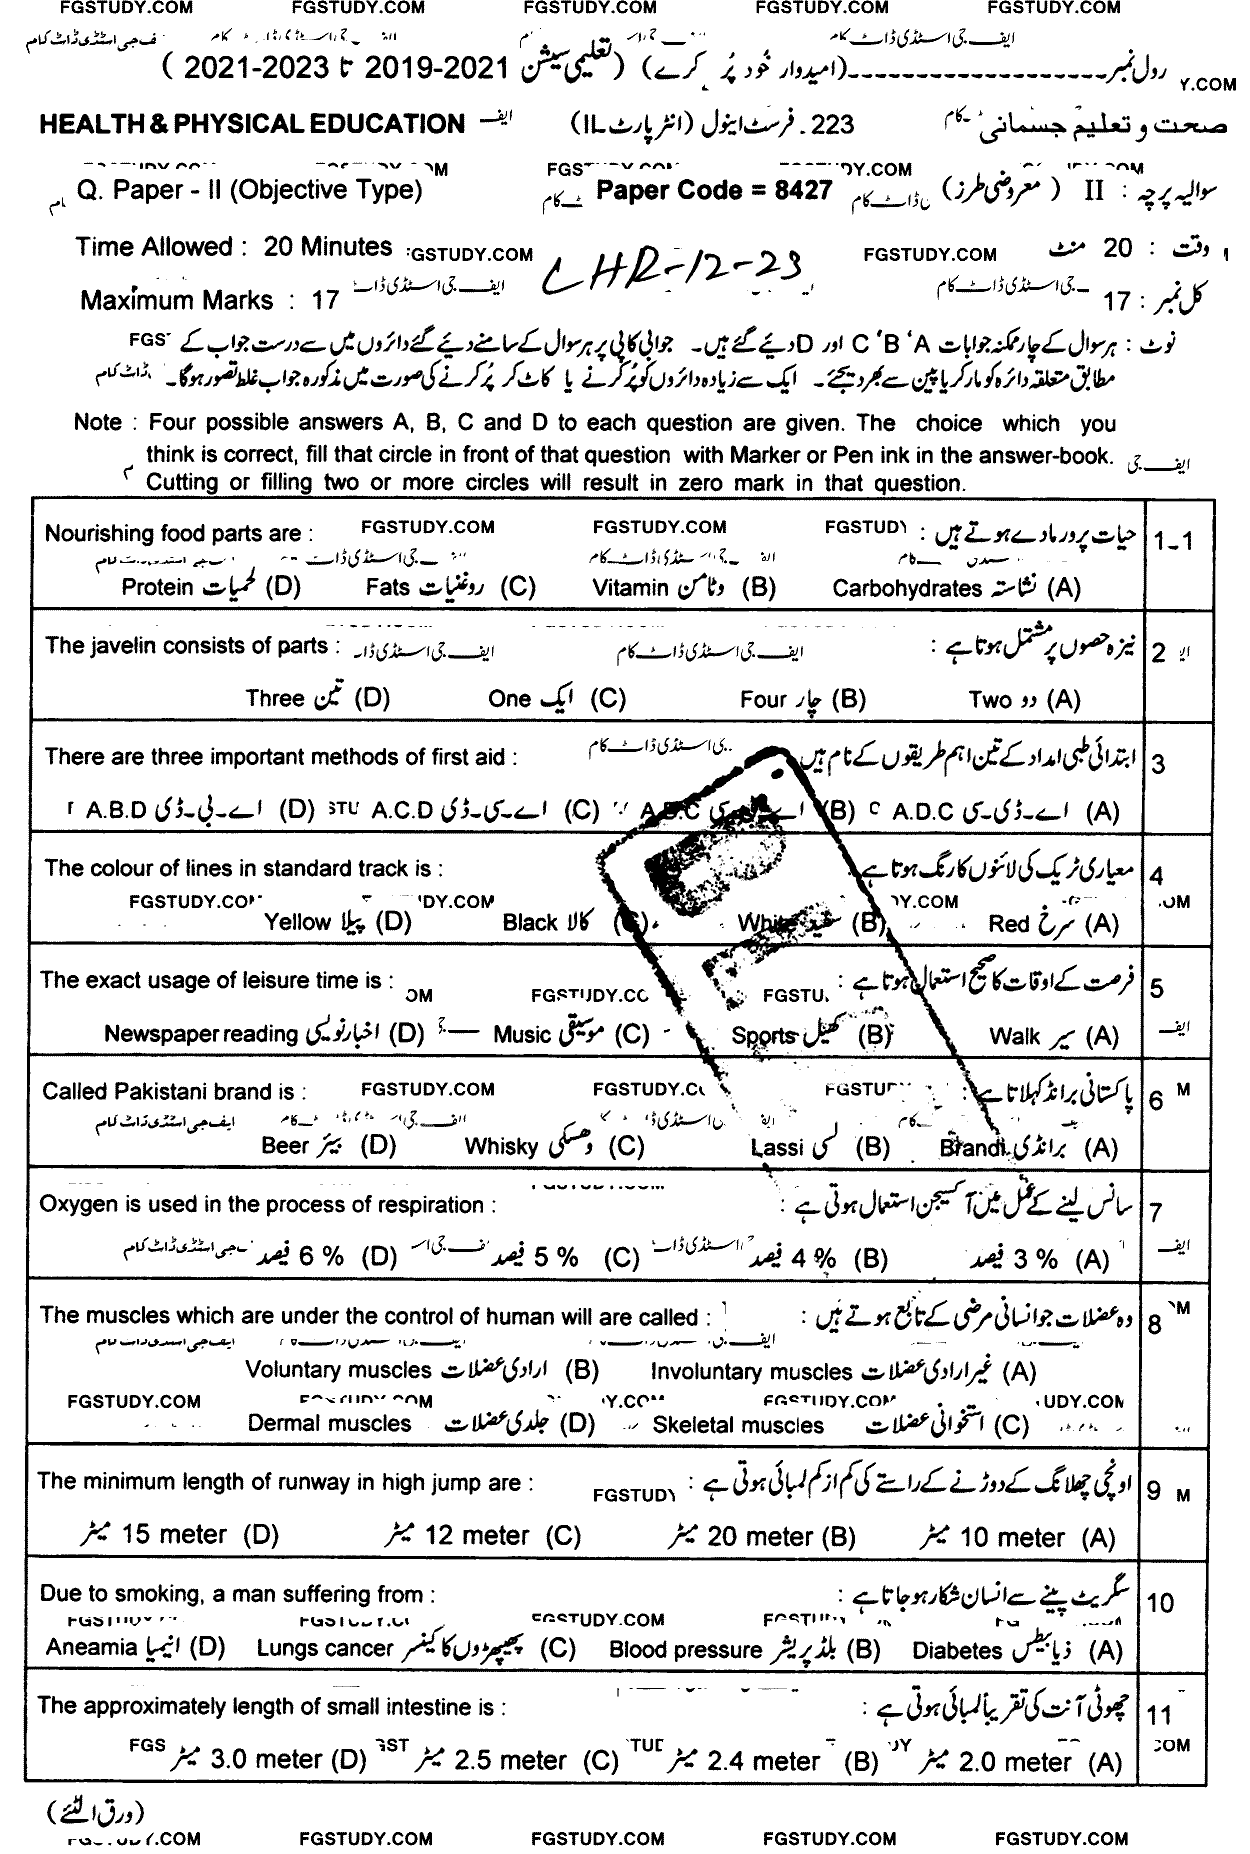 FGSTUDY.COM FGSTUDY.COM FGSTUDY.COM FGSTUDY.COM FGSTUDY.COM
رول نمبر ـــــــــــــــــــ (امیدوار خود پُر کرے) (تعلیمی سیشن 2021-2019 تا 2023-2021) Y.COM
HEALTH & PHYSICAL EDUCATION 223۔ فرسٹ اینول (انٹر پارٹ-II) صحت و تعلیم جسمانی
Q. Paper - II (Objective Type) Paper Code = 8427 سوالیہ پرچہ : II (معروضی طرز)
Time Allowed : 20 Minutes FGSTUDY.COM LHR-12-23 FGSTUDY.COM وقت : 20 منٹ
Maximum Marks : 17 کل نمبر : 17
نوٹ : ہر سوال کے چار ممکنہ جوابات A، B، C اور D دیئے گئے ہیں۔ جوابی کاپی پر ہر سوال کے سامنے دیئے گئے دائروں میں سے درست جواب کے
مطابق متعلقہ دائرہ کو مارکر یا پین سے بھر دیجئے۔ ایک سے زیادہ دائروں کو پُر کرنے یا کاٹ کر پُر کرنے کی صورت میں مذکورہ جواب غلط تصور ہوگا۔
Note : Four possible answers A, B, C and D to each question are given. The choice which you
think is correct, fill that circle in front of that question with Marker or Pen ink in the answer-book.
Cutting or filling two or more circles will result in zero mark in that question.
Nourishing food parts are : FGSTUDY.COM FGSTUDY.COM حیات پرور مادے ہوتے ہیں : 1-1
Protein لحمیات (D) Fats روغنیات (C) Vitamin وٹامن (B) Carbohydrates نشاستہ (A)
The javelin consists of parts : نیزہ حصوں پر مشتمل ہوتا ہے : 2
Three تین (D) One ایک (C) Four چار (B) Two دو (A)
There are three important methods of first aid : ابتدائی طبی امداد کے تین اہم طریقوں کے نام ہیں 3
A.B.D اے۔بی۔ڈی (D) A.C.D اے۔سی۔ڈی (C) A.B.C اے۔بی۔سی (B) A.D.C اے۔ڈی۔سی (A)
The colour of lines in standard track is : معیاری ٹریک کی لائنوں کا رنگ ہوتا ہے 4
Yellow پیلا (D) Black کالا (C) White سفید (B) Red سرخ (A)
The exact usage of leisure time is : فرصت کے اوقات کا صحیح استعمال ہوتا ہے : 5
Newspaper reading اخبار نویسی (D) Music موسیقی (C) Sports کھیل (B) Walk سیر (A)
Called Pakistani brand is : FGSTUDY.COM پاکستانی برانڈ کہلاتا ہے : 6
Beer بیئر (D) Whisky وہسکی (C) Lassi لسی (B) Brandi برانڈی (A)
Oxygen is used in the process of respiration : سانس لینے کے عمل میں آکسیجن استعمال ہوتی ہے : 7
6 % فیصد (D) 5 % فیصد (C) 4 % فیصد (B) 3 % فیصد (A)
The muscles which are under the control of human will are called : وہ عضلات جو انسانی مرضی کے تابع ہوتے ہیں : 8
Voluntary muscles ارادی عضلات (B) Involuntary muscles غیر ارادی عضلات (A)
Dermal muscles جلدی عضلات (D) Skeletal muscles استخوانی عضلات (C)
The minimum length of runway in high jump are : اونچی چھلانگ کے دوڑنے کے راستے کی کم از کم لمبائی ہوتی ہے : 9
15 meter میٹر (D) 12 meter میٹر (C) 20 meter میٹر (B) 10 meter میٹر (A)
Due to smoking, a man suffering from : سگریٹ پینے سے انسان شکار ہو جاتا ہے : 10
Aneamia انیمیا (D) Lungs cancer پھیپھڑوں کا کینسر (C) Blood pressure بلڈ پریشر (B) Diabetes ذیابیطس (A)
The approximately length of small intestine is : چھوٹی آنت کی تقریباً لمبائی ہوتی ہے : 11
3.0 meter میٹر (D) 2.5 meter میٹر (C) 2.4 meter میٹر (B) 2.0 meter میٹر (A)
(ورق الٹئے)
FGSTUDY.COM FGSTUDY.COM FGSTUDY.COM FGSTUDY.COM